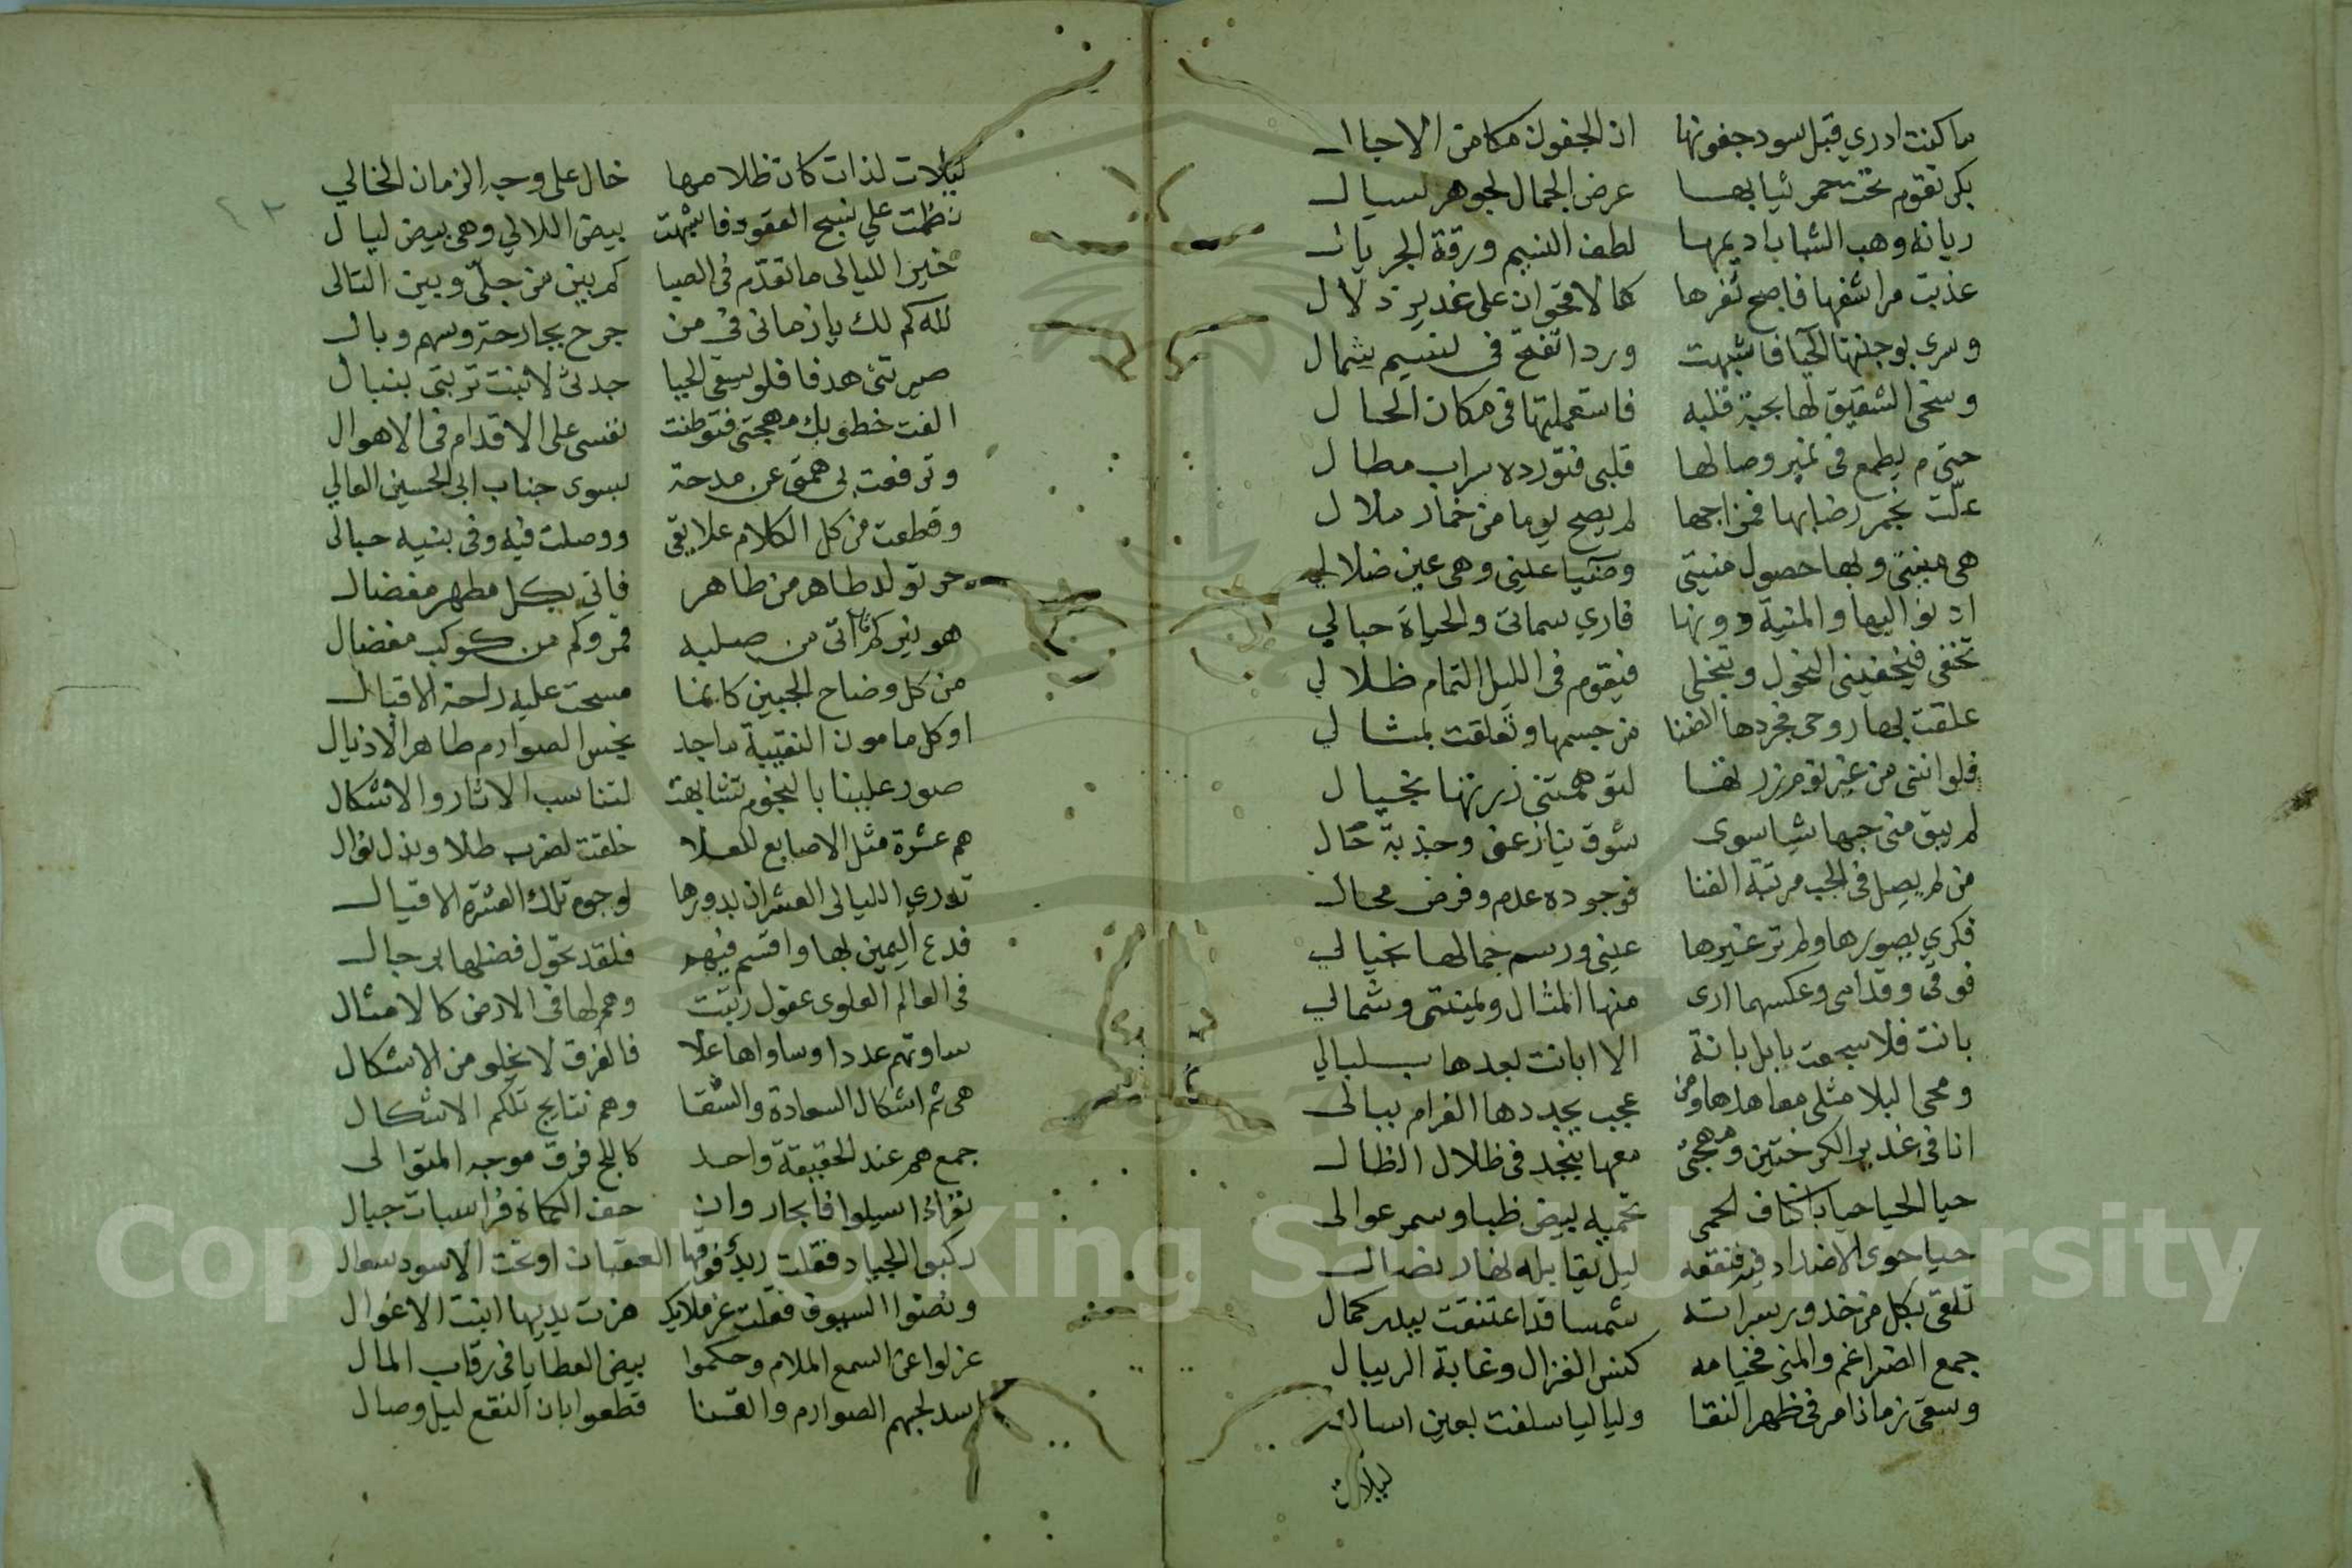 ما كنت ادري قبل سود جفونها ان الجفون مكامن الاجال
بكر تقوم تحت حمر ثيابها عرض الجمال لجوهر سيال
ريانه وهب الشباب اديمها لطف النسيم ورقة الجريال
عذبت مراشفها فاصبح ثغرها كالاقحوان على غدير زلال
وسرى بوجنتها الحيا فاشبهت وردا تفتح فى نسيم شمال
وسخى الشقيق لها بحبة قلبه فاستعملتها فى مكان الخال
حتى م يطمع فى نمير وصالها قلبى فتورده سراب مطال
علت بخمر رضابها فمزاجها لم يصح يوما من خمار ملال
هى منيتى وبها حصول منيتى وضيا عينى وهى عين ضلالي
ادنو اليها والمنية دونها فاري مماتى والحياة حبالي
تخفى فيخفينى النحول وتنجلى فيقوم فى الليل التمام ظلالي
علقت بها روحى فجردها الضنا من جسمها وتعلقت بمثالي
فلو اننى من غير نوم زرتها لتوهمتنى زرتها بخيال
لم يبق منى حبها شيا سوى شوق ينازعنى وجذبة حال
من لم يصل فى الحب مرتبة الفنا فوجوده عدم وفرض محال
فكري يصورها ولم تر غيرها عينى ورسم جمالها بخيالي
فوقى وقدامى وعكسهما ارى منها المثال ويمينتى وشمالي
بانت فلا سجعت بابل بانة الا ابانت بعدها بلبالي
ومحى البلا مثلى معاهدها ومن عجب يجددها الغرام ببالى
انا فى غدير الكرختين ومهجتى معها بنجد فى ظلال الضال
حيا الحيا حيا باكناف الحمى تحميه بيض ظبا وسمر عوالى
حيا حوى الاضداد فيه فنقعه ليل يقابله نهار نصال
تلقى بكل من خدور سراته شمسا قد اعتنقت ببدر كمال
جمع الضراغم والمهى فخيامه كنس الغزال وغابة الريبال
وسقى زمانا مر فى ظهر النقا ولياليا سلفت بعين اسال
ليلات
ليلات لذات كان ظلامها خال على وجه الزمان الخالي
نظمت على نسج العقود فاشبهت بيض اللالي وهى بيض ليال
خير الليالى ما تقدم فى الصبا كم بين من جلى وبين التالى
لله كم لك يا زمانى فى من جرح بجارحة وسهم وبال
صيرتنى هدفا فلو يسقى الحيا جدثى لانبت تربتى بنبال
الفت خطوبك مهجتى فتوطنت نفسى على الاقدام فى الاهوال
وترفعت بى همتى عن مدحة لسوى جناب ابى الحسين العالي
وقطعت من كل الكلام علايقى ووصلت فيه وفى بنيه حبالى
حر تولد طاهر من طاهر فاتى بكل مطهر مفضال
هو نير كم نير اتى من صلبه قمر وكم من كوكب مفضال
من كل وضاح الجبين كانما مسحت عليه راحة الاقبال
او كل مامون النقيبة ماجد نجس الصوارم طاهر الاذيال
صور علينا بالنجوم تشابهت لتناسب الاثار والاشكال
هم عشرة مثل الاصابع للعلا خلقت لضرب طلا وبذل نوال
تدرى الليالى العشر ان بدورها لوجوه تلك العشرة الاقيال
فدع اليمين بها واقسم فيهم فلقد تحول فضلها برجال
فى العالم العلوى عقول رتبت وهم لها فى الارض كالامثال
ساوتهم عددا وساواها علا فالفرق لا يخلو من الاشكال
هى ثم اشكال السعادة والشقا وهم نتايج تلكم الاشكال
جمع هم عند الحقيقة واحد كاليم فرق موجه المتوالى
نفر اذا سيلوا فابحار وان حف الكماة فراسيات جبال
ركبوا الجياد فقلت ربد فوقها العقبان او تحت الاسود سعال
ونضوا السيوف فقلت غر ملايك هزت يديها انبت الاغوال
عزلوا عن السمع الملام وحكموا بيض العطايا فى رقاب المال
اسد لحبهم الصوارم والقنا قطعوا بان النقع ليل وصال